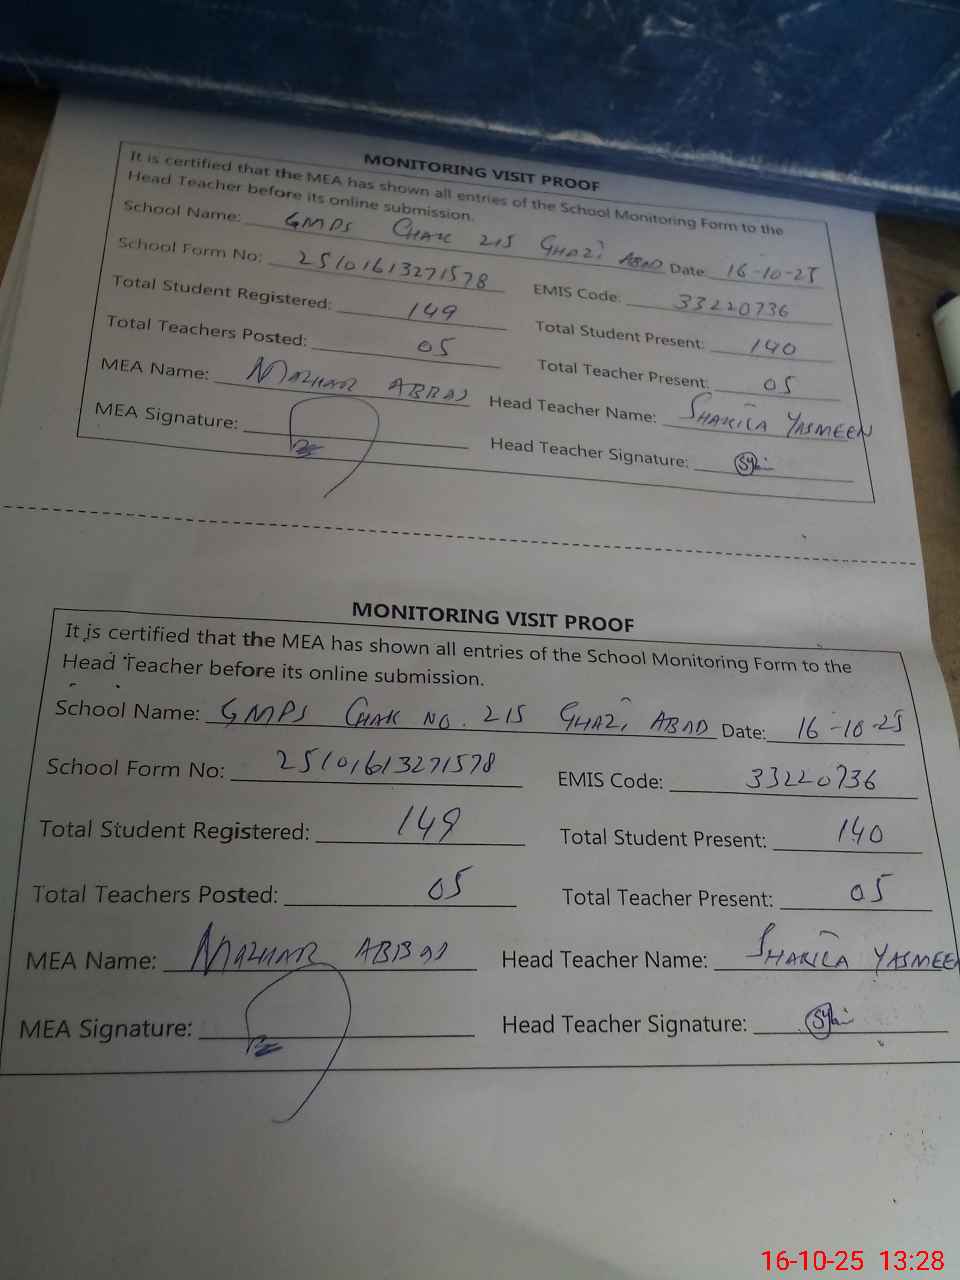 MONITORING VISIT PROOF
It is certified that the MEA has shown all entries of the School Monitoring Form to the
Head Teacher before its online submission.
School Name: GMPS CHAK 215 GHAZI ABAD Date: 16-10-25
School Form No: 25101613271578 EMIS Code: 33220736
Total Student Registered: 149 Total Student Present: 140
Total Teachers Posted: 05 Total Teacher Present: 05
MEA Name: MAZHAR ABBAS Head Teacher Name: SHAKILA YASMEEN
MEA Signature: Head Teacher Signature:
MONITORING VISIT PROOF
It is certified that the MEA has shown all entries of the School Monitoring Form to the
Head Teacher before its online submission.
School Name: GMPS CHAK NO. 215 GHAZI ABAD Date: 16-10-25
School Form No: 25101613271578 EMIS Code: 33220736
Total Student Registered: 149 Total Student Present: 140
Total Teachers Posted: 05 Total Teacher Present: 05
MEA Name: MAZHAR ABBAS Head Teacher Name: SHAKILA YASMEE
MEA Signature: Head Teacher Signature:
16-10-25 13:28